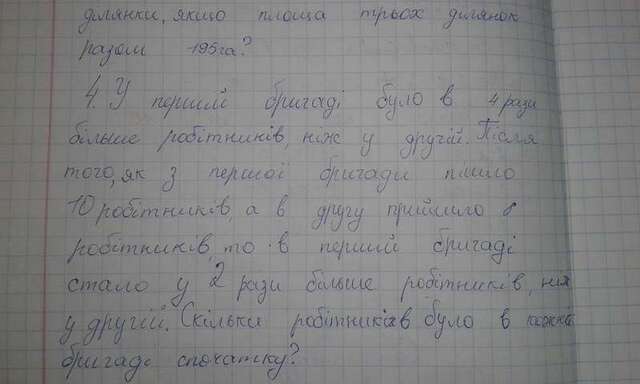 ділянки, якщо площа трьох ділянок
разом 195га?
4. У першій бригаді було в 4 рази
більше робітників, ніж у другій. Після
того, як з першої бригади пішло
10 робітників, а в другу прийшло 8
робітників, то в першій бригаді
стало у 2 рази більше робітників, ніж
у другій. Скільки робітників було в кожній
бригаді спочатку?